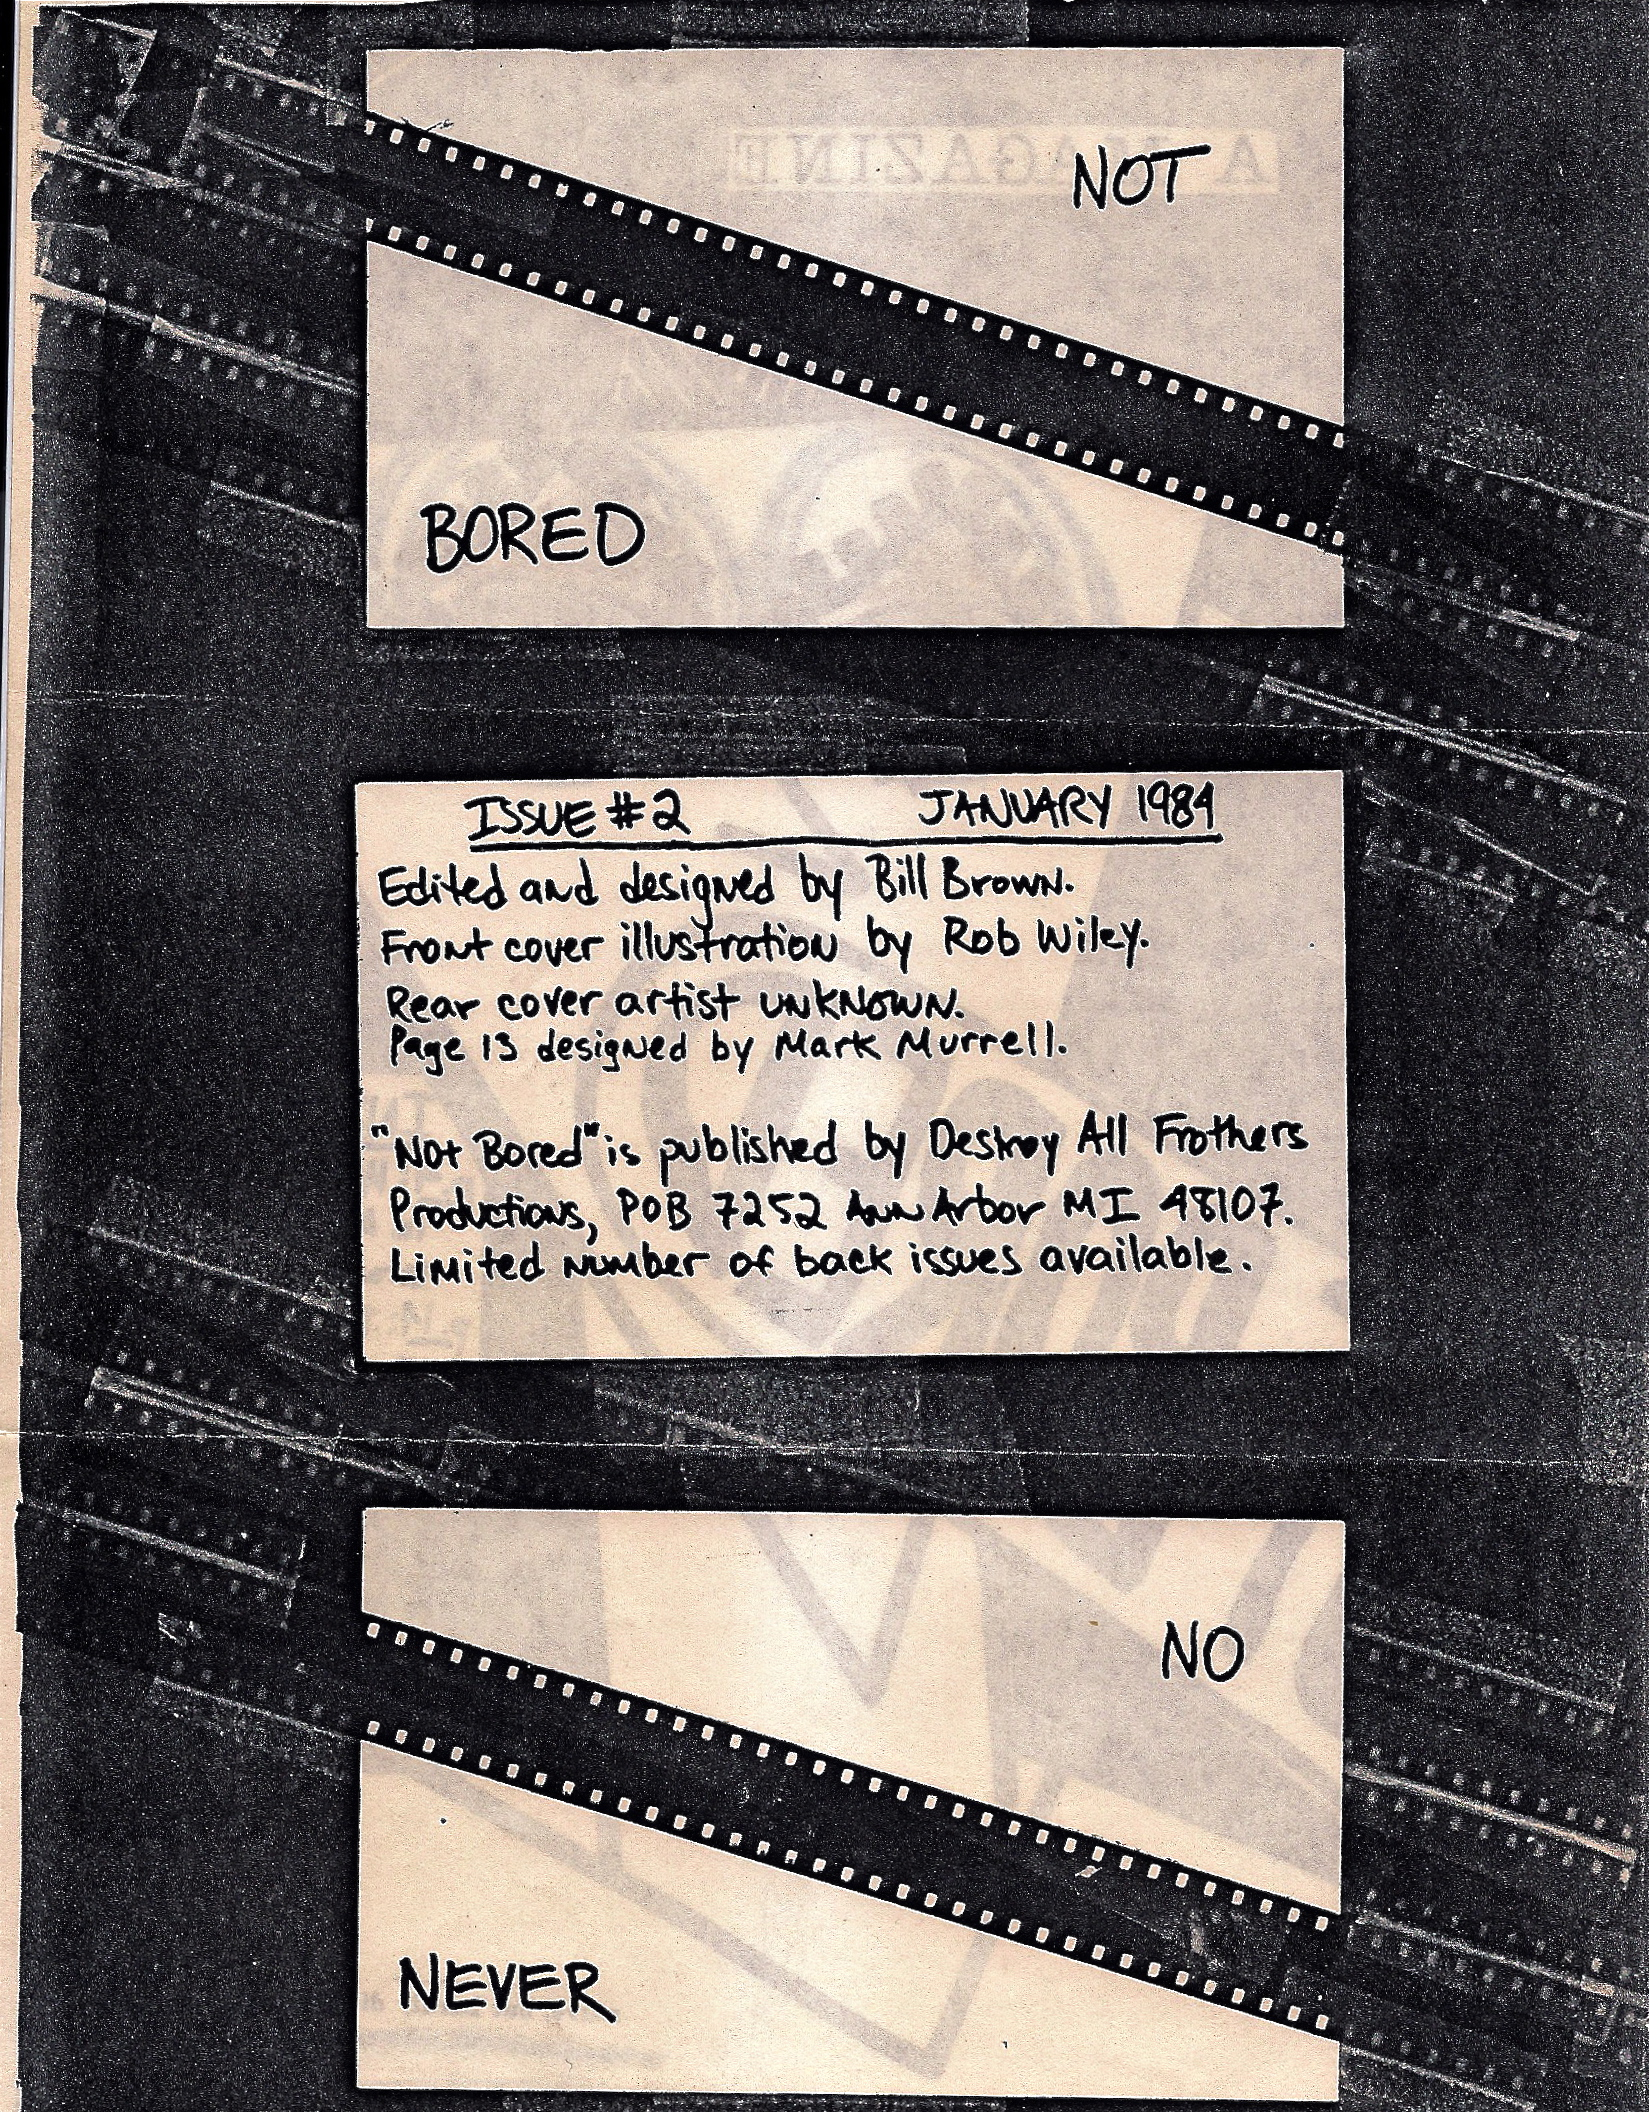 A MAGAZINE
NOT
BORED
ISSUE #2 JANUARY 1984
Edited and designed by Bill Brown.
Front cover illustration by Rob Wiley.
Rear cover artist unknown.
Page 13 designed by Mark Murrell.
"Not Bored" is published by Destroy All Frothers
Productions, POB 7252 Ann Arbor MI 48107.
Limited number of back issues available.
NO
NEVER